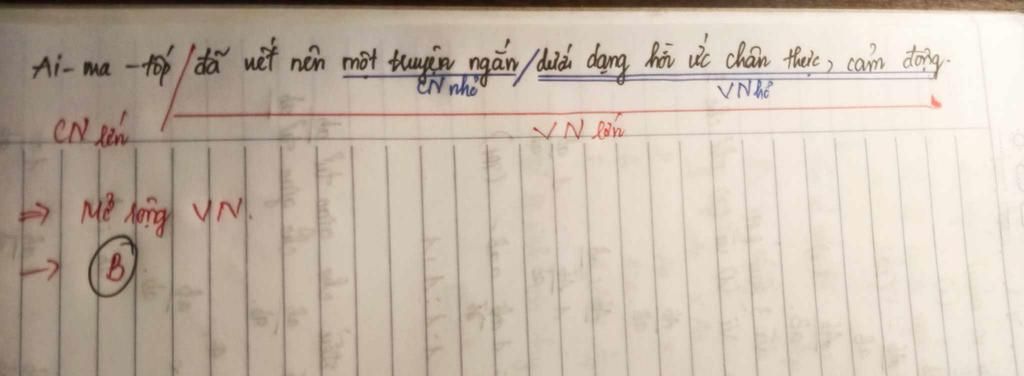 Ai-ma-tốp / đã viết nên một truyện ngắn / dưới dạng hồi ức chân thực, cảm động.
CN nhỏ VN nhỏ
CN lớn VN lớn
=> Mở rộng VN.
-> B